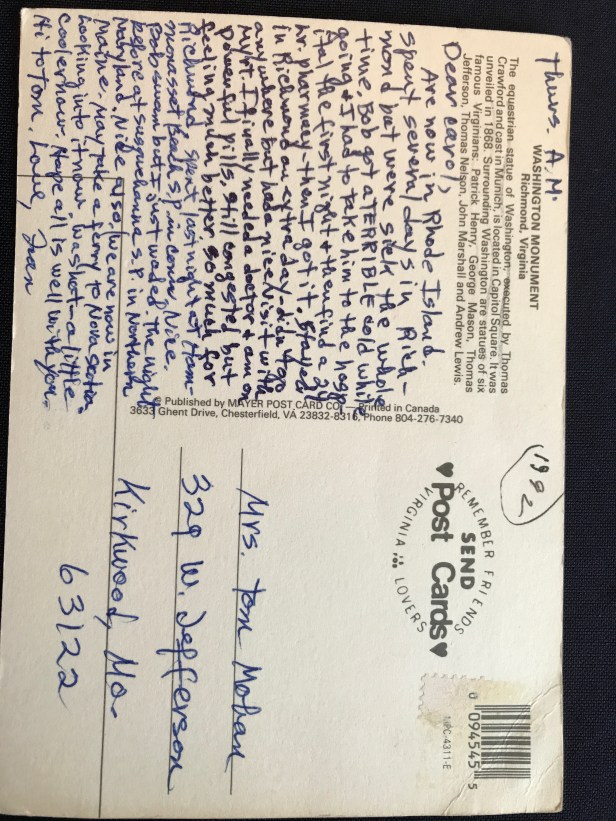 WASHINGTON MONUMENT
Richmond, Virginia
The equestrian statue of Washington, executed by Thomas
Crawford and cast in Munich, is located in Capitol Square. It was
unveiled in 1868. Surrounding Washington are statues of six
famous Virginians: Patrick Henry, George Mason, Thomas
Jefferson, Thomas Nelson, John Marshall and Andrew Lewis.
Thurs. A.M.
Dear Carol,
Are now in Rhode Island.
Spent several days in Rich-
mond but were sick the whole
time. Bob got a TERRIBLE cold while
going & I had to take him to the hosp-
ital the first night & then find a 24
hr. pharmacy - then I got it. Stayed
in Richmond an extra day - didn't go
anywhere but had a nice visit with
Myrt. I finally needed a doctor & am on
powerful pills. Still congested but
feeling better so much for
Richmond. Spent last night at Ham-
monasset Beach S.P. in Conn. Nice.
Bob swam but I just waded. The night
before at Susquehanna S.P. in Northern
Maryland. Nice also. We are now in
Maine. May take a ferry to Nova Scotia.
Looking into it now. Was hot a little
cooler now. Hope all is well with you.
Hi to Tom Love, Jean
© Published by MAYER POST CARD CO. — Printed in Canada
3633 Ghent Drive, Chesterfield, VA 23832-8316, Phone 804-276-7340
1992
REMEMBER FRIENDS
SEND
♥Post Cards♥
VIRGINIA LOVERS
0 094545 5
MPC-4311-E
Mrs. Tom Mohan
329 W. Jefferson
Kirkwood, Mo.
63122